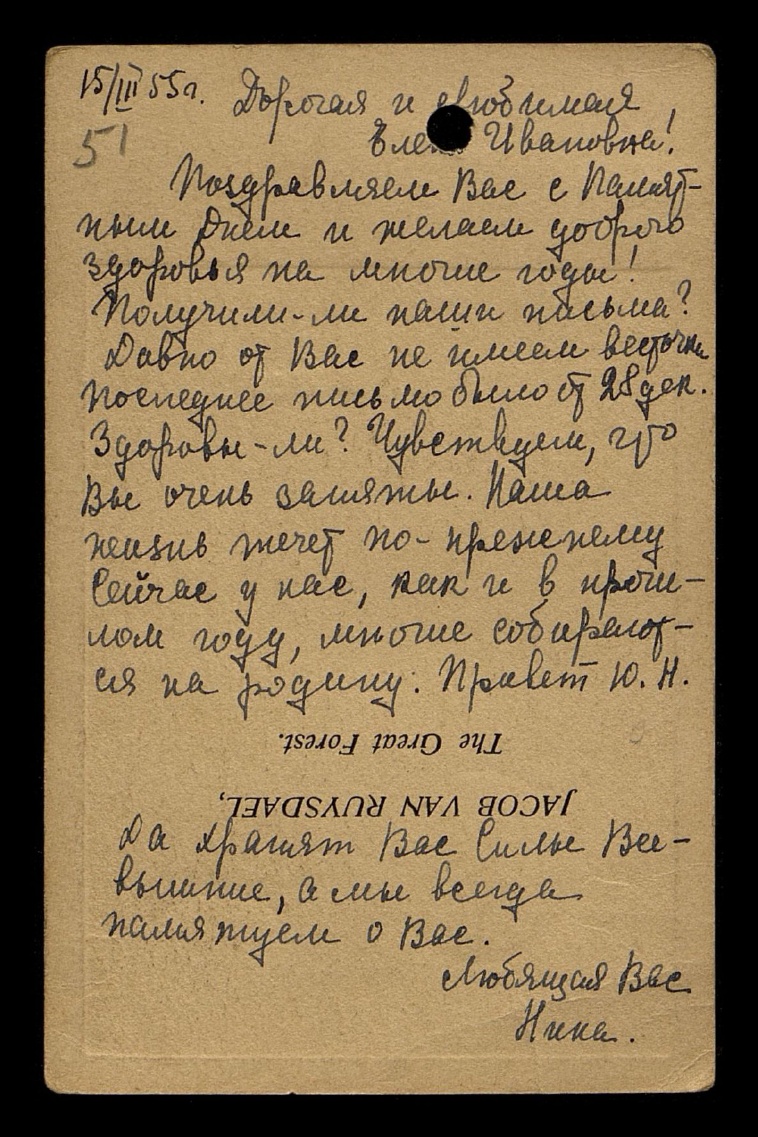 15/III 55г. Дорогая и любимая
51 Елена Ивановна!
Поздравляем Вас с Памят-
ным Днем и желаем доброго
здоровья на многие годы!
Получили-ли наши письма?
Давно от Вас не имеем весточки
Последнее письмо было от 28 дек.
Здоровы-ли? Чувствуем, что
Вы очень заняты. Наша
жизнь течет по-прежнему
Сейчас у нас, как и в прош-
лом году, многие собирают-
ся на родину. Привет Ю. Н.
The Great Forest.
JACOB VAN RUYSDAEL,
Да хранят Вас Силы Все-
вышние, а мы всегда
памятуем о Вас.
Любящая Вас
Нина.